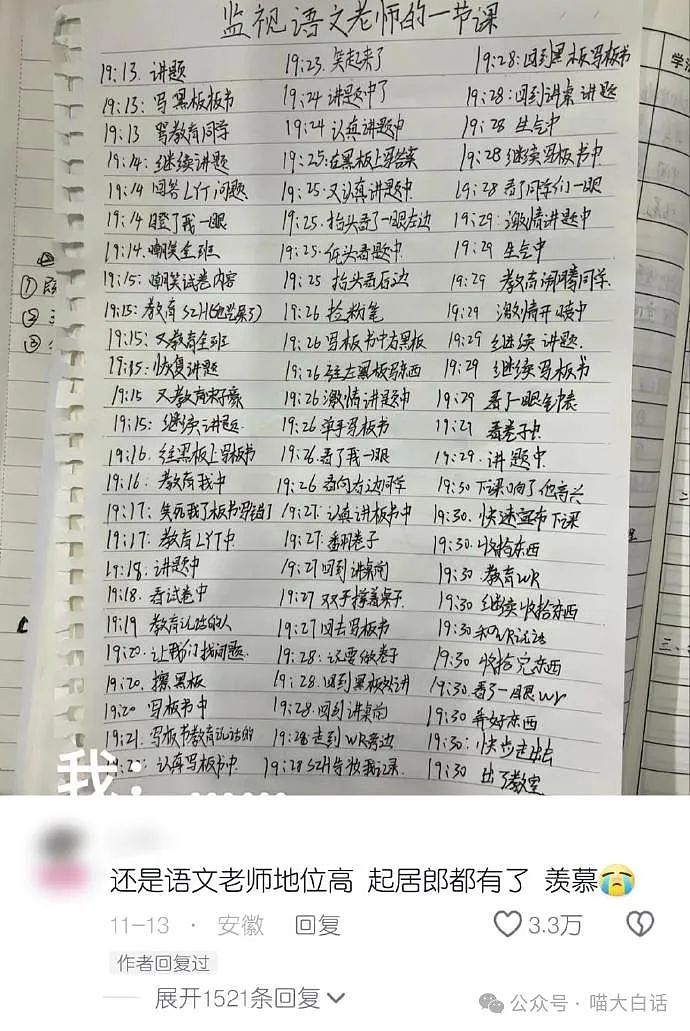 监视语文老师的一节课
19:13. 讲题
19:13: 写黑板板书
19:13 骂教育同学
19:14: 继续讲题
19:14 回答LYT问题
19:14 瞪了我一眼
19:14. 嘲笑全班
19:15: 嘲笑试卷内容
19:15: 教育SZH
19:15: 又教育全班
19:15: 恢复讲题
19:15 又教育
19:15: 继续讲题
19:16. 往黑板上写板书
19:16. 教育我中
19:17: 板书写错了
19:17: 教育LYT中
19:18. 讲题中
19:18. 看试卷中
19:19 教育说话的人
19:20. 让我们找问题
19:20. 擦黑板
19:20 写板书中
19:21. 写板书教育说话的
认真写板书中
19:23. 笑起来了
19:24 讲题中了
19:24 认真讲题中
19:25: 在黑板上写答案
19:25: 又认真讲题中
19:25. 抬头看了一眼左边
19:25: 低头看题中
19:25 抬头看右边
19:26 捡粉笔
19:26 写板书中右黑板
19:26 往左黑板写东西
19:26 激情讲题中
19:26 单手写板书
19:26. 看了我一眼
19:26 看向右边同学
19:27. 认真讲板书中
19:27: 翻卷子
19:27 回到讲桌前
19:27 双手撑着桌子
19:27 回去写板书
19:28: 还要做卷子
19:28. 回到黑板处讲
19:28. 回到讲桌前
19:28 走到WR旁边
19:28 SZH夸我记录
19:28: 回到黑板写板书
19:28: 回到讲桌 讲题
19:28 生气中
19:28 继续写板书中
19:28 看了同学们一眼
19:29: 激情讲题中
19:29 生气中
19:29 教育同学
19:29 激情开讲中
19:29 继续讲题
19:29 继续写板书
19:29 看了一眼钟表
19:29 看卷子中
19:29. 讲题中
19:30 下课响了他高兴
19:30. 快速宣布下课
19:30. 收拾东西
19:30 教育WR
19:30 继续收拾东西
19:30 和WR说话
19:30 收拾完东西
19:30. 看了一眼WR
19:30 弄好东西
19:30: 快步走出去
19:30 出了教室
我：......
还是语文老师地位高 起居郎都有了 羡慕😭
11-13 · 安徽 回复 3.3万
作者回复过
展开1521条回复
公众号 · 喵大白话